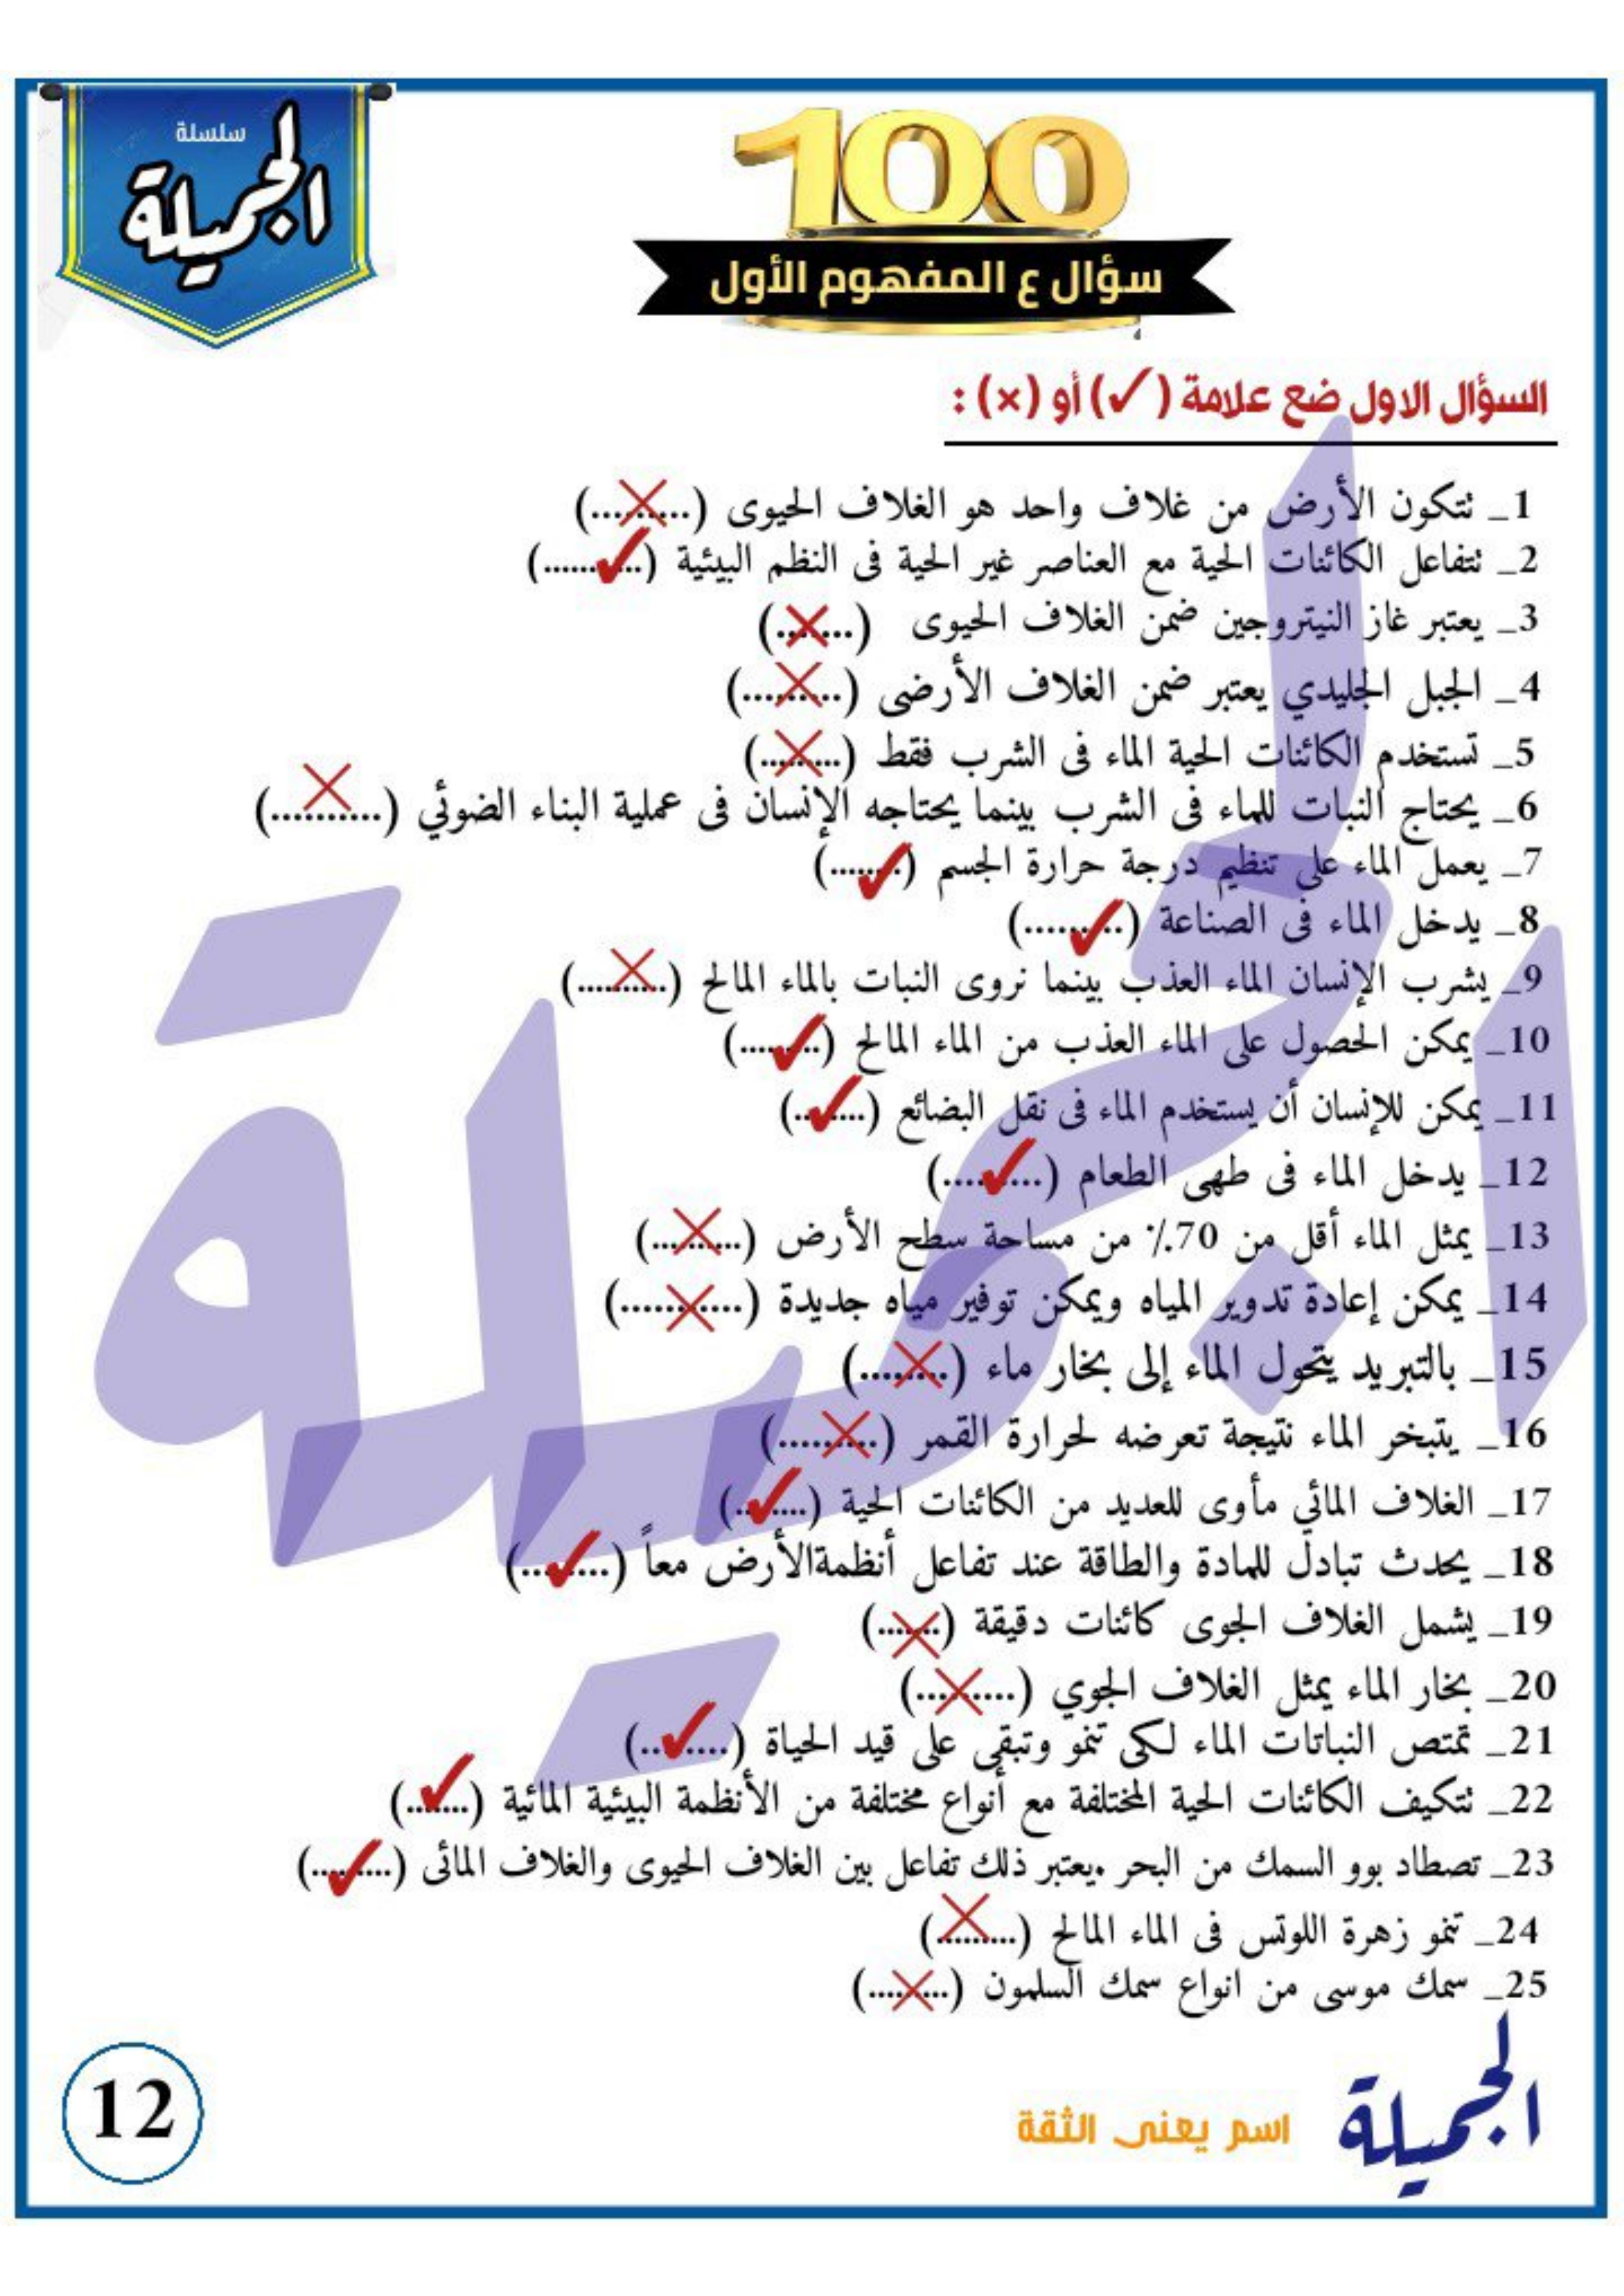 سلسلة
الجميلة
100
سؤال ع المفهوم الأول
السؤال الاول ضع علامة (✓) أو (×) :
1_ تتكون الأرض من غلاف واحد هو الغلاف الحيوى (.........)
2_ تتفاعل الكائنات الحية مع العناصر غير الحية فى النظم البيئية (..........)
3_ يعتبر غاز النيتروجين ضمن الغلاف الحيوى (.......)
4_ الجبل الجليدي يعتبر ضمن الغلاف الأرضى (.........)
5_ تستخدم الكائنات الحية الماء فى الشرب فقط (........)
6_ يحتاج النبات للماء فى الشرب بينما يحتاجه الإنسان فى عملية البناء الضوئي (..........)
7_ يعمل الماء على تنظيم درجة حرارة الجسم (.......)
8_ يدخل الماء فى الصناعة (.........)
9_ يشرب الإنسان الماء العذب بينما نروى النبات بالماء المالح (.........)
10_ يمكن الحصول على الماء العذب من الماء المالح (........)
11_ يمكن للإنسان أن يستخدم الماء فى نقل البضائع (.......)
12_ يدخل الماء فى طهى الطعام (.........)
13_ يمثل الماء أقل من 70٪ من مساحة سطح الأرض (.........)
14_ يمكن إعادة تدوير المياه ويمكن توفير مياه جديدة (............)
15_ بالتبريد يتحول الماء إلى بخار ماء (.........)
16_ يتبخر الماء نتيجة تعرضه لحرارة القمر (..........)
17_ الغلاف المائي مأوى للعديد من الكائنات الحية (.......)
18_ يحدث تبادل للمادة والطاقة عند تفاعل أنظمةالأرض معاً (........)
19_ يشمل الغلاف الجوى كائنات دقيقة (.......)
20_ بخار الماء يمثل الغلاف الجوي (..........)
21_ تمتص النباتات الماء لكى تنمو وتبقى على قيد الحياة (........)
22_ تتكيف الكائنات الحية المختلفة مع أنواع مختلفة من الأنظمة البيئية المائية (.......)
23_ تصطاد بوو السمك من البحر .يعتبر ذلك تفاعل بين الغلاف الحيوى والغلاف المائى (.........)
24_ تنمو زهرة اللوتس فى الماء المالح (.........)
25_ سمك موسى من انواع سمك السلمون (.........)
الجميلة
اسم يعنى الثقة
12